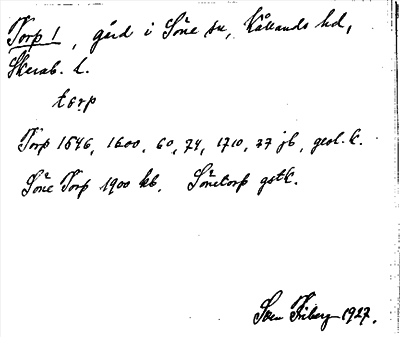 Torp 1, gård i Söne sn, Kållands hd,
Skarab. l.
tårp
Torp 1546, 1600, 60, 74, 1710, 27 jb, geol. k.
Söne Torp 1900 kb. Sönetorp gstk.
Sven Friberg 1927.